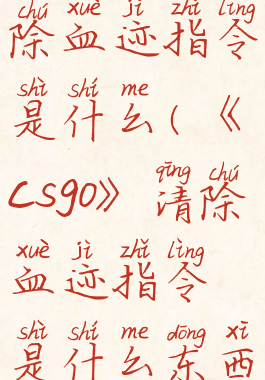 chú xuè jì zhǐ lìng
除血迹指令
shì shí me
是什么(《
qīng chú
csgo》 清除
xuè jì zhǐ lìng
血迹指令
shì shí me dōng xī
是什么东西